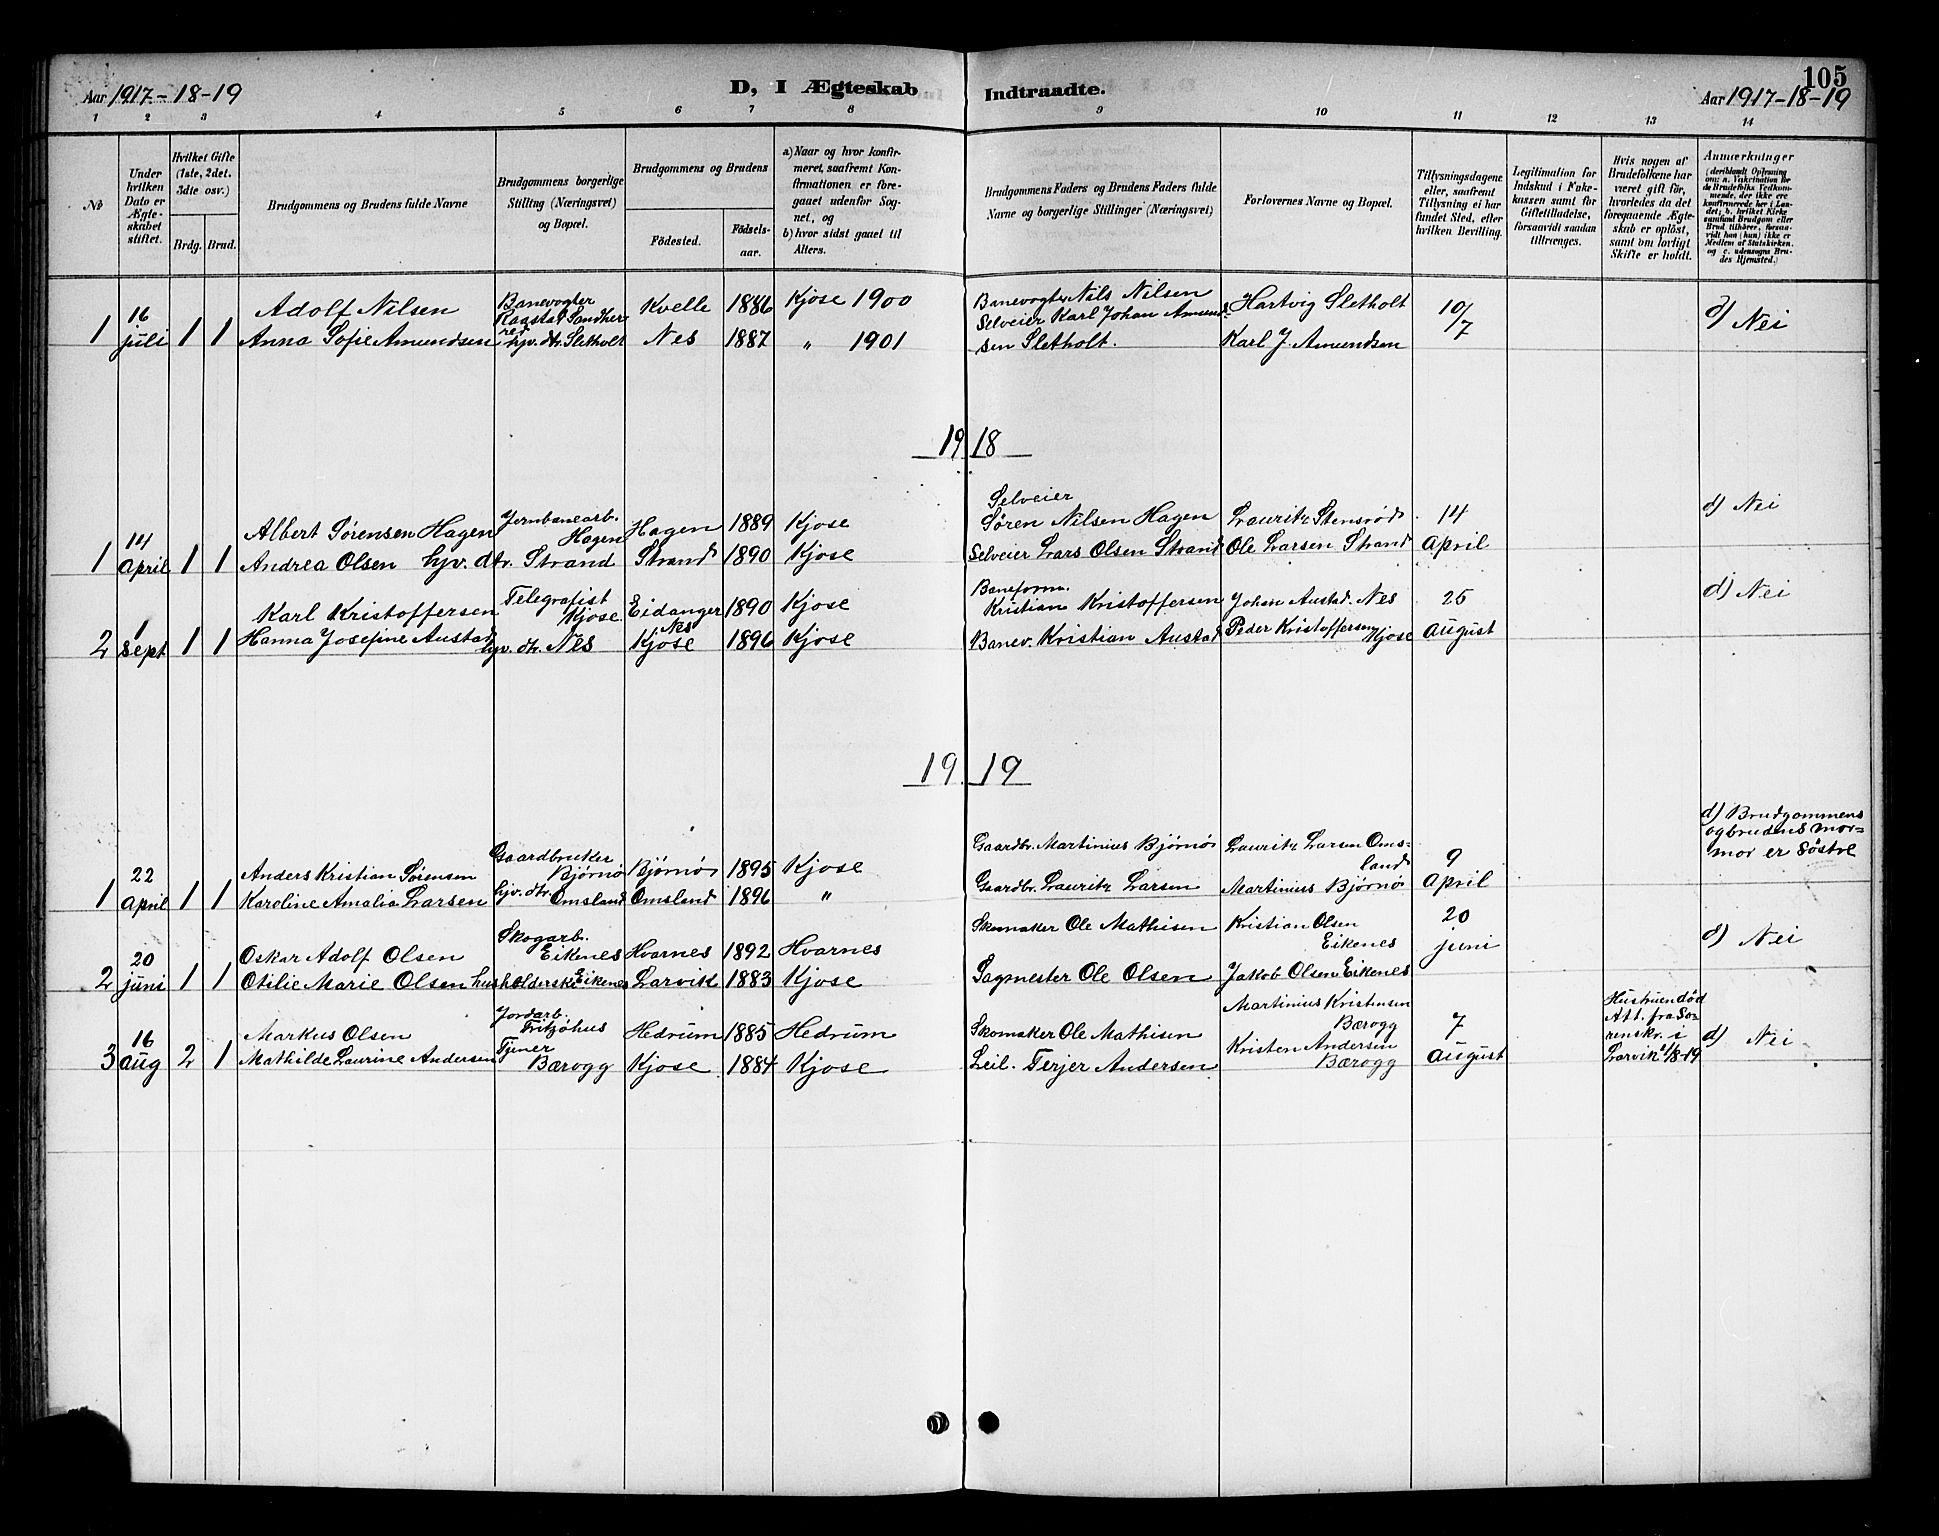 105
Aar 1917-18-19 D, I Ægteskab Indtraadte. Aar 1917-18-19
1 2 3 4 5 6 7 8 9 10 11 12 13 14
№
Under hvilken Dato er Ægteskabet stiftet.
Hvilket Gifte (1ste, 2det. 3die osv.)
Brdg. Brud.
Brudgommens og Brudens fulde Navne
Brudgommens borgerlige Stilling (Næringsvei) og Bopæl.
Brudgommens og Brudens
Fødested. Fødselsaar.
a) Naar og hvor konfirmeret, saafremt Konfirmationen er foregaaet udenfor Sognet, og
b) hvor sidst gaaet til Alters.
Brudgommens Faders og Brudens Faders fulde Navne og borgerlige Stillinger (Næringsvei)
Forlovernes Navne og Bopæl.
Tillysningsdagene eller, saafremt Tillysning ei har fundet Sted, efter hvilken Bevilling.
Legitimation for Indskud i Enkekassen samt for Giftetilladelse, forsaavidt saadan tiltrænges.
Hvis nogen af Brudefolkene har været gift før, hvorledes da det foregaaende Ægteskab er opløst, samt om lovligt Skifte er holdt.
Anmærkninger
(deriblandt Oplysning om: a. Vakcination for de Brudefolks Vedkommende, der ikke ere konfirmerede her i Landet; b. hvilket Kirkesamfund Brudgom eller Brud tilhører, forsaavidt han (hun) ikke er Medlem af Statskirken. og c. udensogns Brudes Hjemsted.)
1 16 juli 1 1
Adolf Nilsen Banevogter Raastad Sandherred Kvelle 1886 Kjose 1900 Banevogter Nils Nilsen Hartvig Sletholt 10/7 d) Nei
Anna Sofie Amundsen hjv. dtr. Sletholt Nes 1887 " 1901 Selveier Karl Johan Amundsen Sletholt. Karl J. Amundsen
1918
1 14 April 1 1
Albert Sørensen Hagen Jernbanearb. Hagen Hagen 1889 Kjose Selveier Søren Nilsen Hagen Lauritz Stensrød 14 April d) Nei
Andrea Olsen hjv. dtr. Strand Strand 1890 Kjose Selveier Lars Olsen Strand Ole Larsen Strand
2 1 Sept 1 1
Karl Kristoffersen Telegrafist Kjose Eidanger 1890 Kjose Baneform. Kristian Kristoffersen Johan Austad. Nes 25 August d) Nei
Hanna Josefine Austad hjv. dtr. Nes Nes Kjose 1896 Kjose Banev. Kristian Austad Peder Kristoffersen Kjose
1919
1 22 April 1 1
Anders Kristian Sørensen Gaardbruker Bjørnø Bjørnø 1895 Kjose Gaardbr. Martinius Bjørnø Lauritz Larsen Omsland 9 April d) Brudgommens og brudens mormor er Søstre
Karoline Amalia Larsen hjv. dtr. Omsland Omsland 1896 " Gaardbr. Lauritz Larsen Martinius Bjørnø
2 20 juni 1 1
Oskar Adolf Olsen Skogarb. Eikenes Hvarnes 1892 Hvarnes Skomaker Ole Mathisen Kristian Olsen Eikenes 20 juni d) Nei
Otilie Marie Olsen husholderske Eikenes Larvik 1883 Kjose Sagmester Ole Olsen Jakob Olsen Eikenes
3 16 Aug 2 1
Markus Olsen Jordarb. Fritzøhus Hedrum 1885 Hedrum Skomaker Ole Mathisen Martinius Kristensen Bærogg 7 August Hustruen død Att. fra Sorenskr. i Larvik /8-19 d) Nei
Mathilde Laurine Andersen Tjener Bærogg Kjose 1884 Kjose Leil. Terjer Andersen Kristen Andersen Bærogg